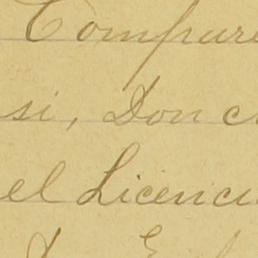 Compare
si, Don c
el Licenci